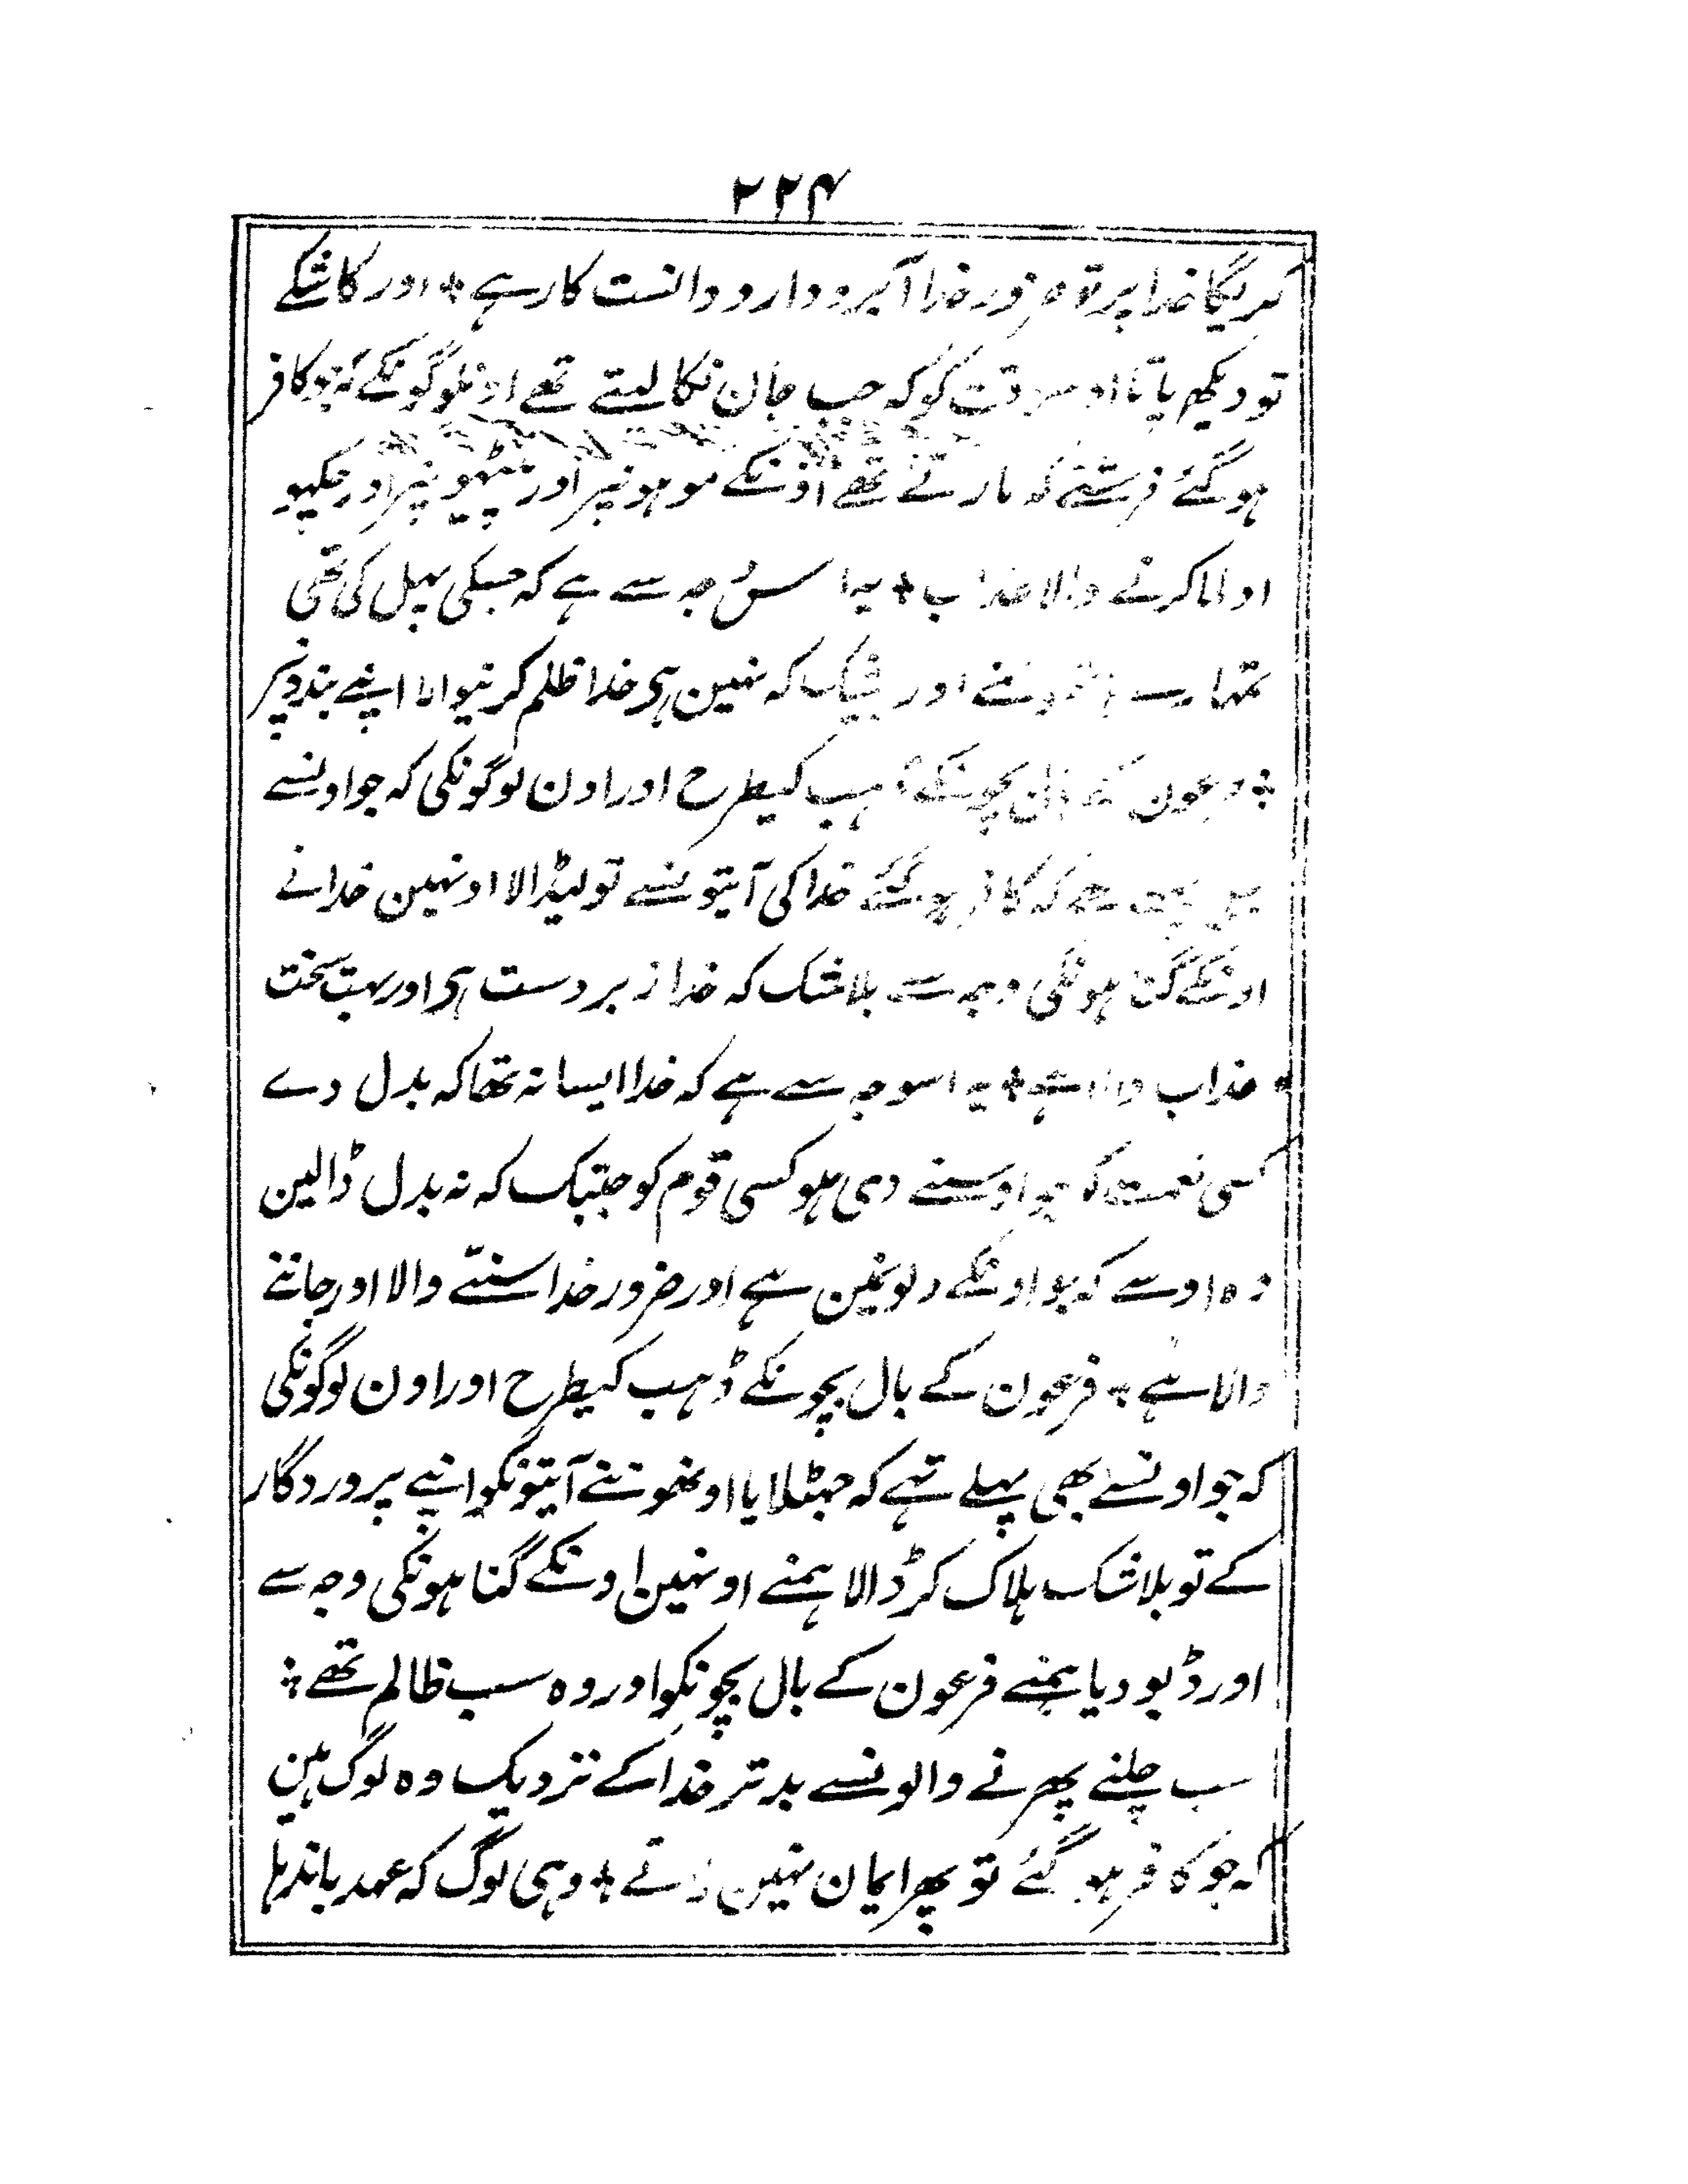 ۲۲۴
کریگا خدا پر تو ضرور خدا آبرودار و دانست کار ہے ٭ اور کاشکے
تو دیکھ پاتا اوسوقت کو کہ جب جان نکالیتے تھے اونلوگونکے کہ جو کافر
ہوگئے فرشتے کہ مارتے تھے اونکے موہونپر اور پیٹھونپر اور چکھو
اولا کرنے والا عذاب ٭ یہ اسوجہ سے ہے کہ جسکی پہل کی تھی
تمہارے ہاتھونسے اور بیشک کہ نہین ہی خدا ظلم کرنیوالا اپنے بندونپر
٭ فرعون کے بال بچونکے ڈہب کیطرح اور اون لوگونکی کہ جو اونسے
پہلے تھے کہ کافر ہوگئے خدا کی آیتونسے تو لیڈالا اونہین خدانے
اونکے گناہونکی وجہ سے بلاشک کہ خدا زبردست ہی اور بہت سخت
عذاب والا ہے ٭ یہ اسوجہ سے ہے کہ خدا ایسا نہ تھا کہ بدل دے
کسی نعمت کو جو اوسنے دی ہو کسی قوم کو جبتک کہ نہ بدل ڈالین
وہ اوسے کہ جو اونکے دلونمین ہے اور ضرور خدا سنتے والا اور جاننے
والا ہے ٭ فرعون کے بال بچونکے ڈہب کیطرح اور اون لوگونکی
کہ جو اونسے بھی پہلے تہے کہ جہٹلایا اونھونے آیتونکو اپنے پروردگار
کے تو بلاشک ہلاک کر ڈالا ہمنے اونہین اونکے گناہونکی وجہ سے
اور ڈبو دیا ہمنے فرعون کے بال بچونکو اور وہ سب ظالم تھے ٭
سب چلنے پھرنے والونسے بدتر خدا کے نزدیک وہ لوگ ہین
کہ جو کافر ہوگئے تو پھر ایمان نہین لاتے ٭ وہی لوگ کہ عہد باندہا